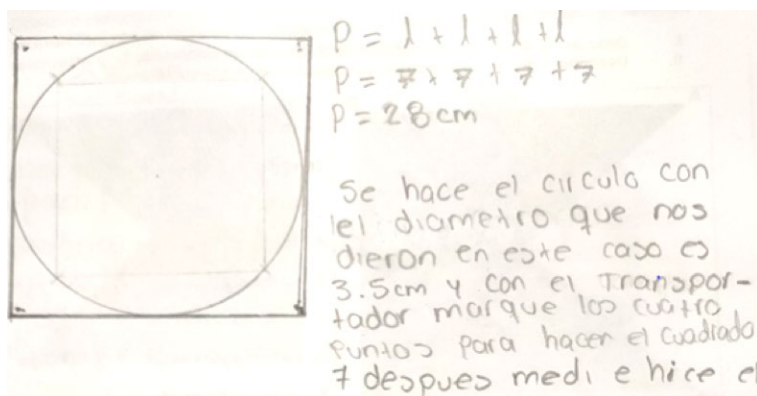 P = l + l + l + l
P = 7 + 7 + 7 + 7
P = 28 cm
Se hace el circulo con
el diametro que nos
dieron en este caso es
3.5cm y con el Transpor-
tador marque los cuatro
puntos para hacer el cuadrado
7 despues medi e hice el